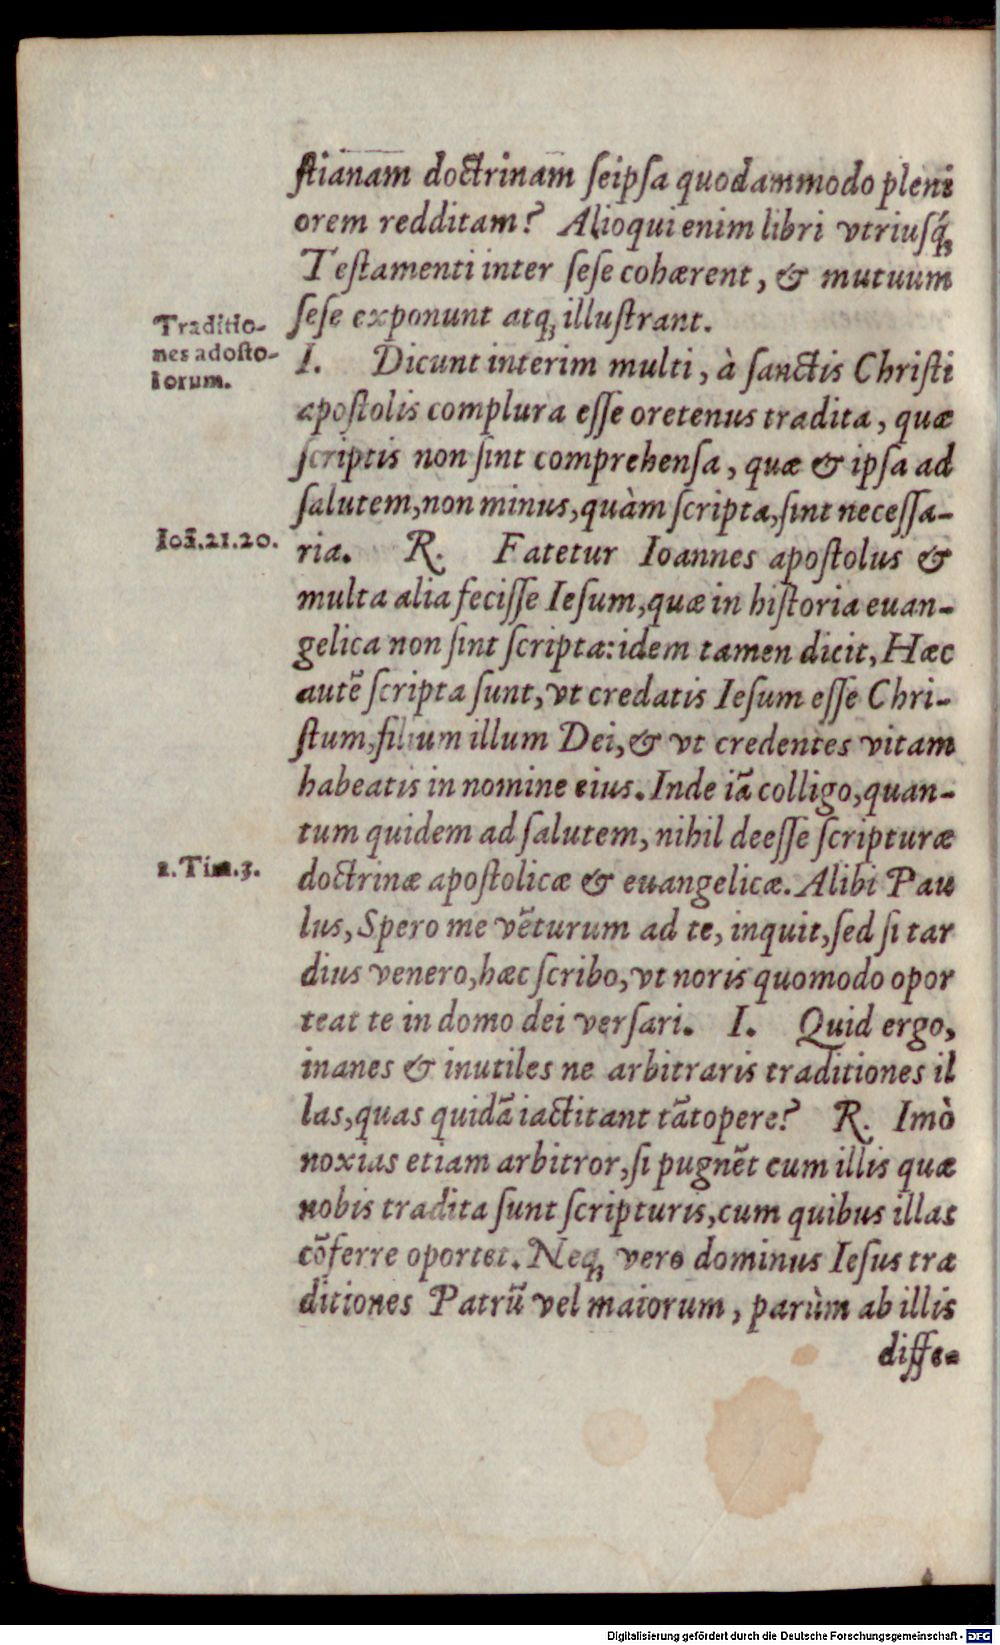 ſtianam doctrinam ſeipſa quodammodo pleni
orem redditam? Alioqui enim libri vtriuſq́ꝫ
Teſtamenti inter ſeſe cohærent, & mutuum
ſeſe exponunt atqꝫ illuſtrant.
Traditio-
nes adoſto-
lorum.
I. Dicunt interim multi, à ſanctis Chriſti
apoſtolis complura eſſe oretenus tradita, quæ
ſcriptis non ſint comprehenſa, quæ & ipſa ad
ſalutem, non minus, quàm ſcripta, ſint neceſſa-
Ioā.21.20.
ria. R. Fatetur Ioannes apoſtolus &
multa alia feciſſe Ieſum, quæ in hiſtoria euan-
gelica non ſint ſcripta: idem tamen dicit, Hæc
autē ſcripta ſunt, vt credatis Ieſum eſſe Chri-
ſtum, filium illum Dei, & vt credentes vitam
habeatis in nomine eius. Inde iā colligo, quan-
tum quidem ad ſalutem, nihil deeſſe ſcripturæ
2.Tim.3.
doctrinæ apoſtolicæ & euangelicæ. Alibi Pau
lus, Spero me vēturum ad te, inquit, ſed ſi tar
dius venero, hæc ſcribo, vt noris quomodo opor
teat te in domo dei verſari. I. Quid ergo,
inanes & inutiles ne arbitraris traditiones il
las, quas quidā iactitant tātopere? R. Imò
noxias etiam arbitror, ſi pugnēt cum illis quæ
nobis tradita ſunt ſcripturis, cum quibus illas
cōferre oportet. Neqꝫ vero dominus Ieſus tra
ditiones Patrū vel maiorum, parùm ab illis
diffe-
Digitalisierung gefördert durch die Deutsche Forschungsgemeinschaft - DFG